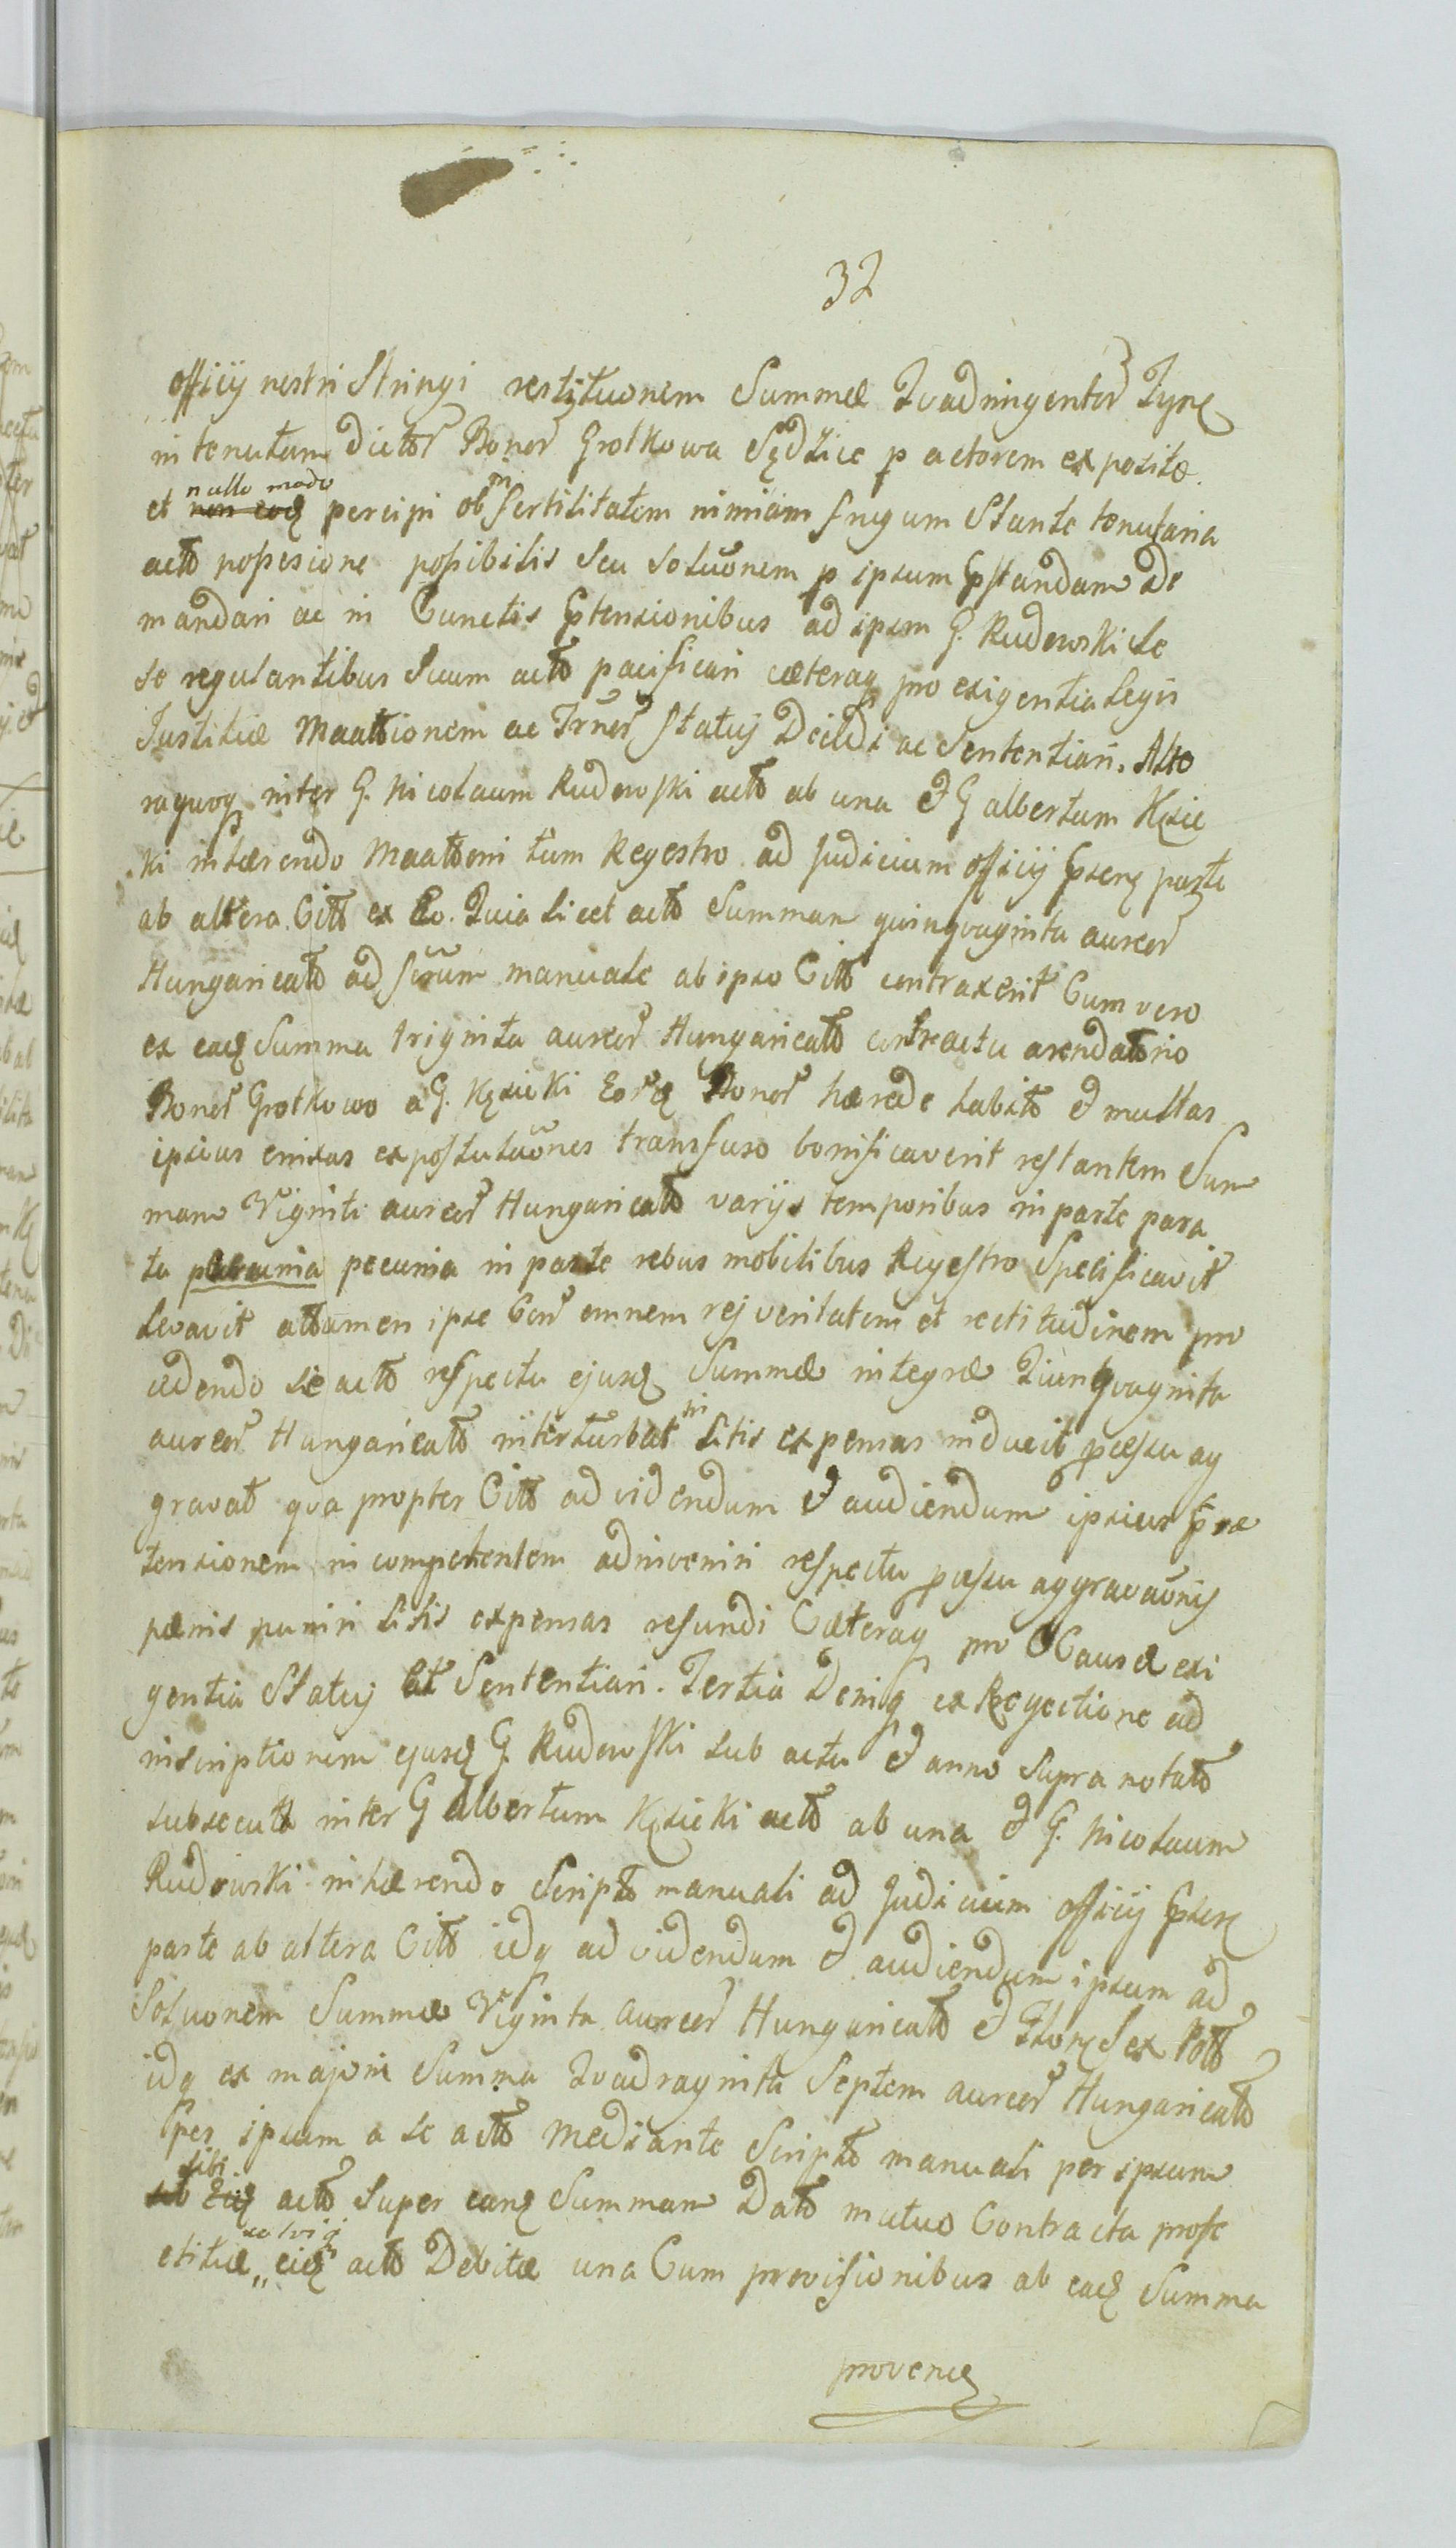 32
officij nostri Stringi restitutionem Summæ Quadringentor Tyne
in tenutam dictor Bonor Grotkowa Sędzice p actorem exposite.
et nullo modo non eoq percipi ob infertilitatem nimiam frugum Stante tenutaria
acto possesione possibilis seu soluonem p ipsum pstandam de
mandari ac in Cunctis ptensionibus ad ipsm G. Rudowski se
se regulantibus Suum acto pacificari cæteraq pro exigentia legis
Justitiæ Maattionem ac Trner statuj Decidi ac Sententiari. Alte
raquoq inter G. Nicolaum Rudowski acto ab una et G albertum Kęsic
ki inhærendo Maattoni tum Regestro ad Judicium officij pseng parte
ab altera Citto ex Eo. Quia licet acto Summan quinquaginta aureor
Hungaricalo ad scrum manuale ab ipso Citto contraxerit Cum vero
ex eaq Summa triginta aureor Hungaricalo contractu arendatorio
Bonor Grotkowo a G. Kęsicki Eorq Bonor hærede habito et multas
ipsius enixas expostulaones transfuso bonificaverit restantem Sum
mam Viginti aureor Hungaricalo varijs temporibus in parte para
ta pecunia in parte rebus mobilibus Regestro Specificavit
Levavit attamen ipse Conr omnem rej veritatem et rectitudinem pro
cedendo se acto respectu ejusq Summæ integræ Quinquaginta
aureor Hungaricalo interturbat in litis expensas inducit pæssu ag
gravat qua propter Citto ad videndum et audiendum ipsius præ
tensionem incompetentem adinveniri respectu pæssu aggravaonis
pænis puniri litis expensas refundi Cæteraq pro Causæ exi
gentia Statuj et Sententiari. Tertia Deniq ex Regectione ad
inscriptionem ejusq G. Rudowski sub actu et anno Supra notato
subsecuta inter G albertum Kęsicki acto ab una et G. Nicolaum
Rudowski inhærendo Scripto manuali ad Judicium officij pseng
parte ab altera Citto idq ad videndum et audiendum ipsum ad
Soluonem Summæ Viginta aureor Hungaricalo et Flonq Sex Potto
idq ex majori Summa Quadraginta Septem aureor Hungaricalo
per ipsum a se acto mediante Scripto manuali per ipsum
sibi Eiq acto Super eanq Summam Dato mutuo Contracta profe
ctitiæ solvi eiq acto Debitæ una Cum provisionibus ab eaq Summa
provenien